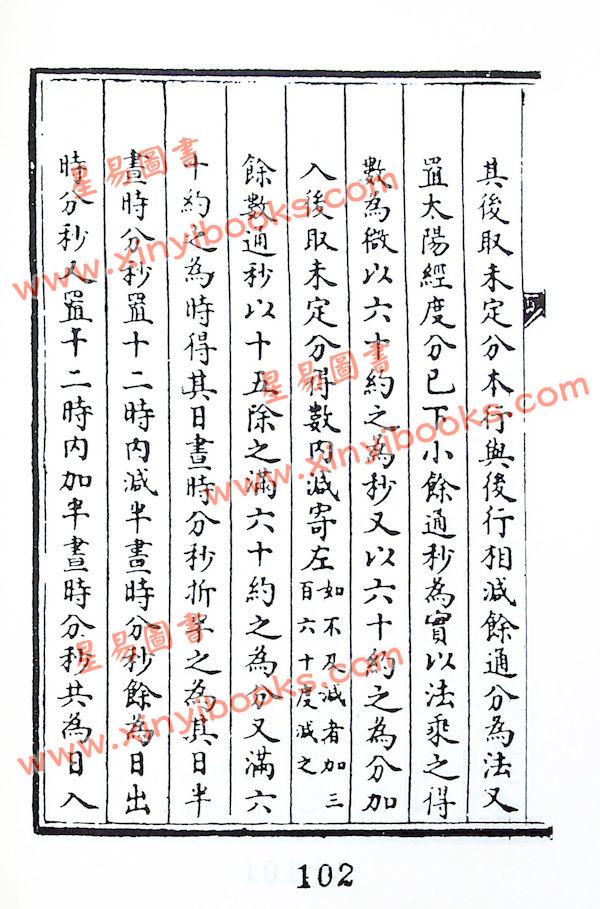 其後取未定分本行與後行相減餘通分為法又
置太陽經度分已下小餘通秒為實以法乘之得
數為微以六十約之為秒又以六十約之為分加
入後取未定分得數內減寄左如不及減者加三百六十度減之
餘數通秒以十五除之滿六十約之為分又滿六
十約之為時得其日晝時分秒折半之為其日半
晝時分秒置十二時內減半晝時分秒餘為日出
時分秒又置十二時內加半晝時分秒共為日入
102
星易圖書
www.xinyibooks.com
星易圖書
www.xinyibooks.com
星易圖書
www.xinyibooks.com